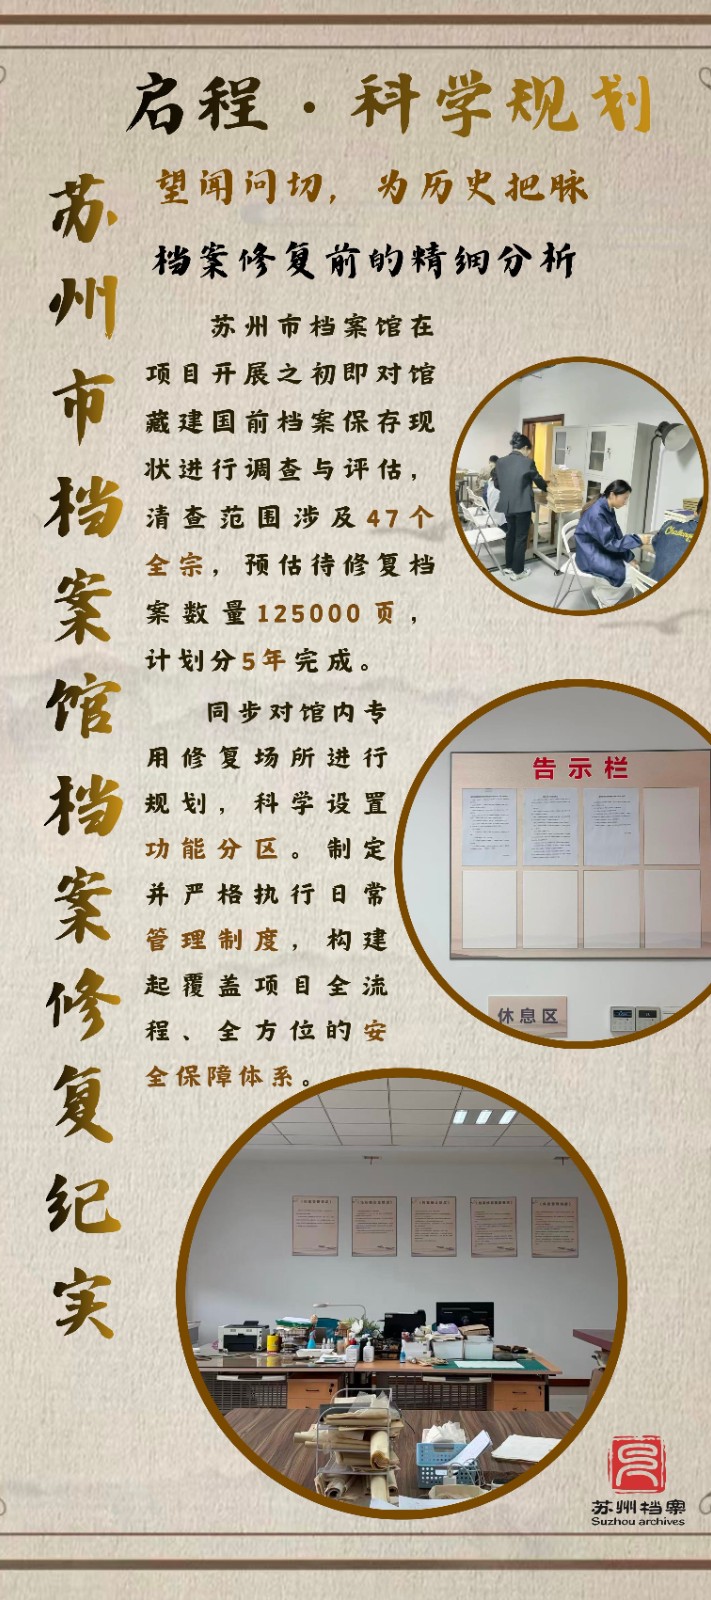 启程·科学规划
望闻问切，为历史把脉
档案修复前的精细分析
苏州市档案馆档案修复纪实
苏州市档案馆在
项目开展之初即对馆
藏建国前档案保存现
状进行调查与评估，
清查范围涉及47个
全宗，预估待修复档
案数量125000页，
计划分5年完成。
同步对馆内专
用修复场所进行
规划，科学设置
功能分区。制定
并严格执行日常
管理制度，构建
起覆盖项目全流
程、全方位的安
全保障体系。
告示栏
休息区
苏州档案
Suzhou archives